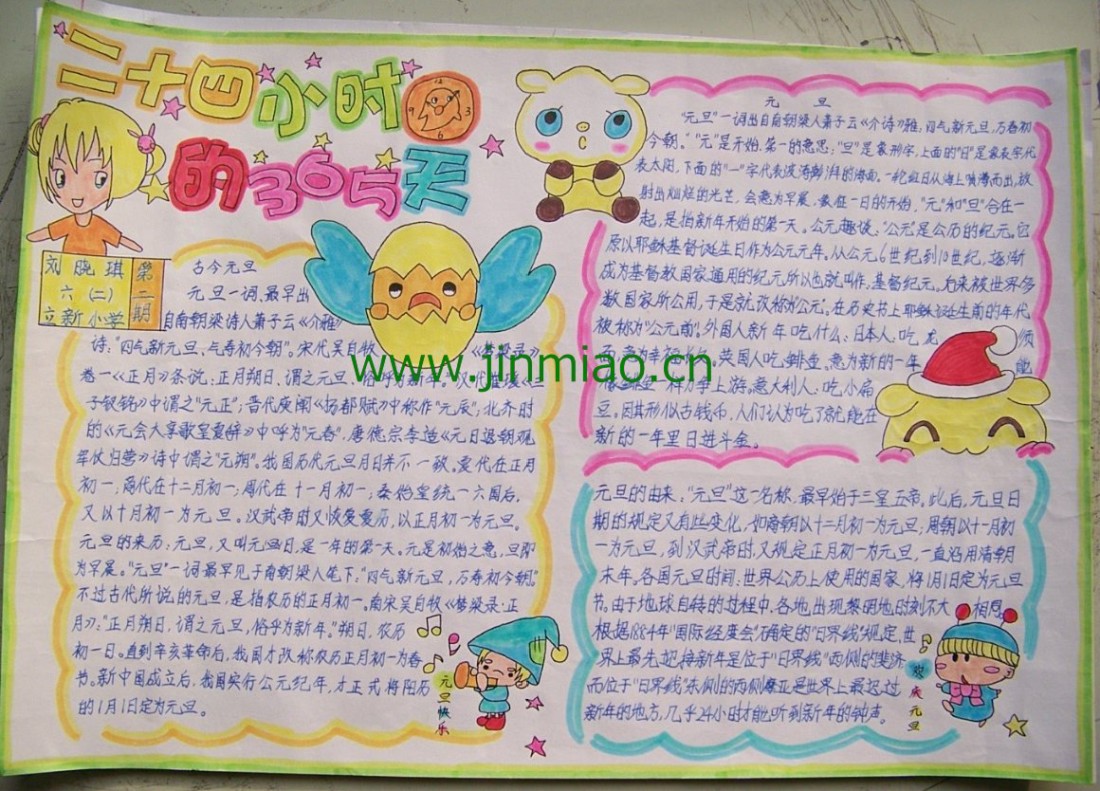 二十四小时
的365天
刘晓琪
六(二)
立新小学
第一期
古今元旦
元旦一词、最早出
自南朝梁诗人萧子云《介雅》
诗:“四气新元旦、万寿初今朝”。宋代吴自牧《梦梁录》
卷一《正月》条说:正月朔日、谓之元旦、俗呼为新年。汉代崔瑗《三
子钗铭》中谓之“元正”;晋代庾阐《扬都赋》中称作“元辰”;北齐时
的《元会大享歌皇夏辞》中呼为“元春”,唐德宗李适《元日退朝观
军仗归营》诗中谓之“元朔”。我国历代元旦月日并不一致。夏代在正月
初一,商代在十二月初一;周代在十一月初一;秦始皇统一六国后,
又以十月初一为元旦。汉武帝时又恢复夏历,以正月初一为元旦。
元旦的来历:元旦,又叫元旦日,是一年的第一天。元是初始之意,旦即
为早晨。“元旦”一词最早见于南朝梁人笔下:“四气新元旦,万寿初今朝。”
不过古代所说的元旦,是指农历的正月初一。南宋吴自牧《梦梁录·正
月》:“正月朔日,谓之元旦,俗乎为新年。”朔日,农历
初一日。直到辛亥革命后,我国才改称农历正月初一为春
节。新中国成立后,我国实行公元纪年,才正式将阳历
的1月1日定为元旦。
元旦快乐
元 旦
“元旦”一词出自南朝梁人萧子云《介诗》雅,四气新元旦,万春初
今朝。“元”是开始、第一的意思;“旦”是象形字,上面的“日”是象表字代
表太阳,下面的“一”字代表波涛澎湃的海面。一轮红日从海上喷薄而出,放
射出灿烂的光芒,会意为早晨、象征一日的开始,“元”和“旦”合在一
起,是指新年开始的第一天。公元趣谈:“公元”是公历的纪元。它
原以耶稣基督诞生日作为公元元年,从公元6世纪到10世纪,逐渐
成为基督教国家通用的纪元所以也就叫作,基督纪元,后来被世界多
数国家所公用,于是就改称为公元,在历史书上耶稣诞生前的年代
被称为“公元前”。外国人新年吃什么:日本人:吃龙须
英国人吃鲱鱼,意为新的一年能
像鲱鱼一样力争上游。意大利人:吃小扁
豆。因其形似古钱币,人们认为吃了就能在
新的一年里日进斗金。
元旦的由来:“元旦”这一名称,最早始于三皇五帝,此后,元旦日
期的规定又有些变化,如商朝以十二月初一为元旦;周朝以十一月初
一为元旦,到汉武帝时,又规定正月初一为元旦,一直沿用清朝
末年。各国元旦时间:世界公历上使用的国家,将1月1日定为元旦
节。由于地球自转的过程中,各地出现黎明地时刻不大相同
根据1884年“国际经度会”确定的“日界线”规定,世
界上最先迎接新年是位于“日界线”西侧的斐济
而位于“日界线”东侧的西侧摩亚是世界上最迟过
新年的地方,几乎24小时才能听到新年的钟声。
欢庆元旦
www.jinmiao.cn